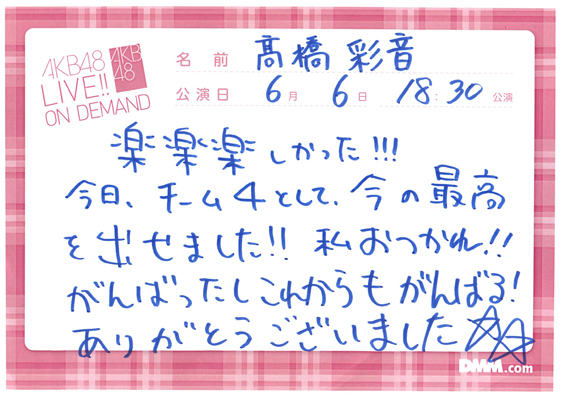 AKB48
LIVE!!
ON DEMAND
AKB
48
名前 髙橋 彩音
公演日 6月 6日 18:30 公演
楽楽楽しかった!!!
今日、チーム4として、今の最高
を出せました!! 私おつかれ!!
がんばったしこれからもがんばる!
ありがとうございました☆☆
DMM.com